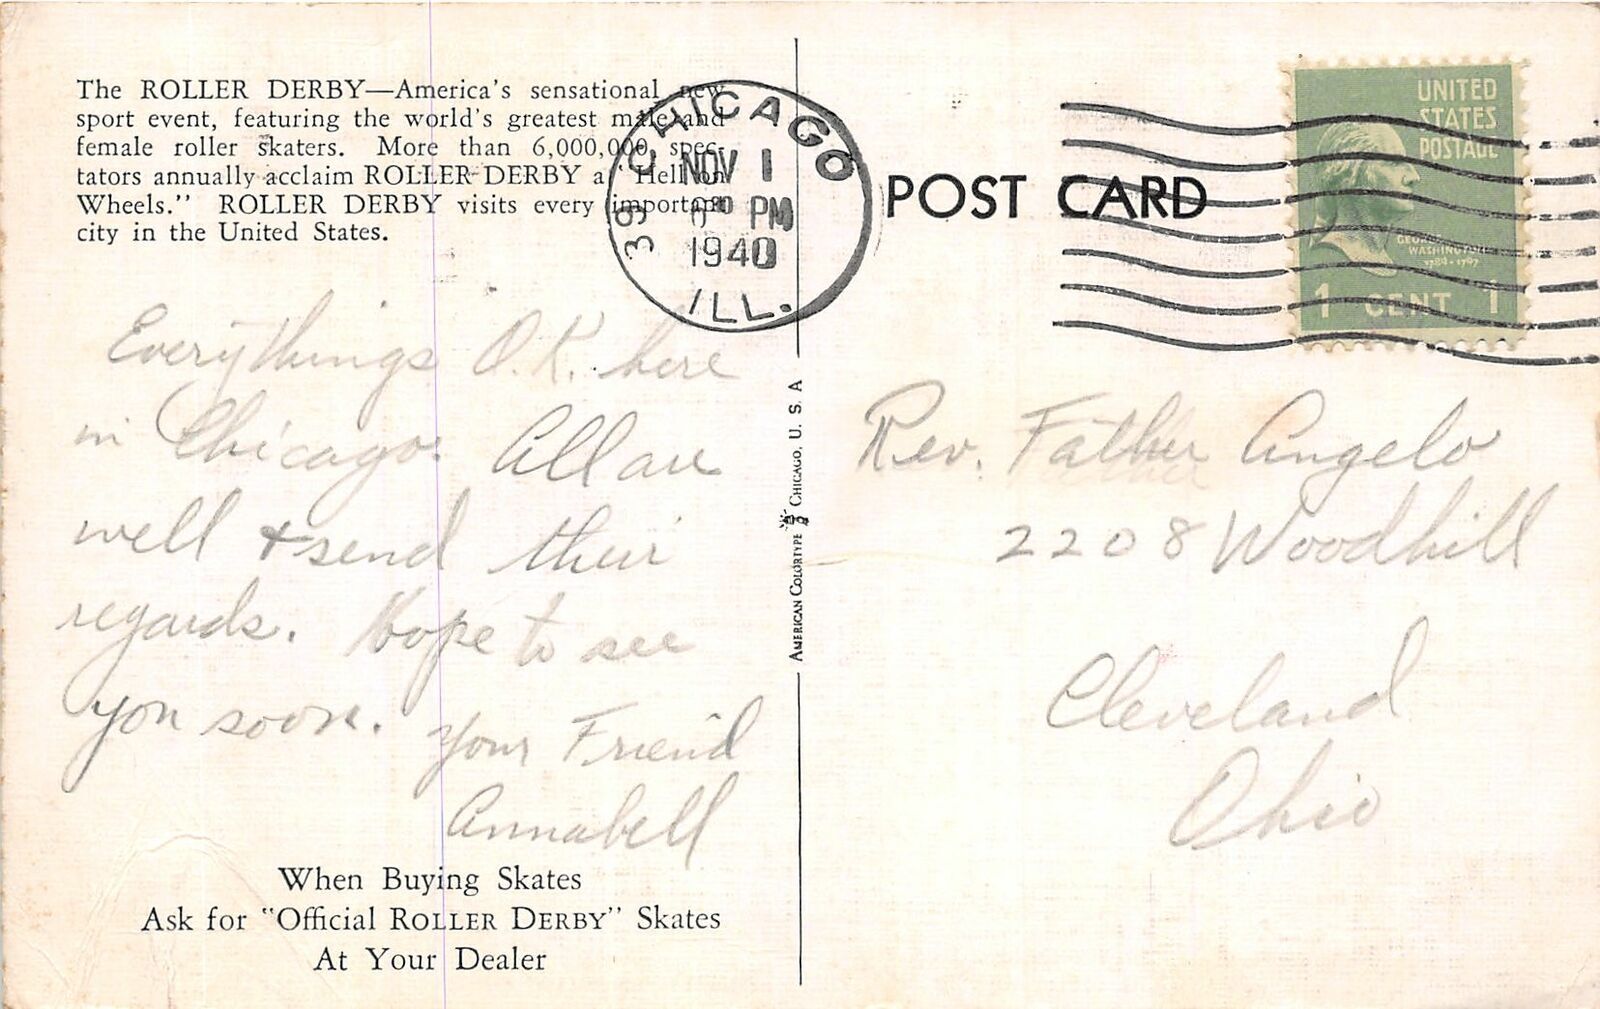 The ROLLER DERBY—America's sensational new
sport event, featuring the world's greatest male and
female roller skaters. More than 6,000,000 spec-
tators annually acclaim ROLLER DERBY a "Hell on
Wheels." ROLLER DERBY visits every important
city in the United States.
CHICAGO 39
NOV 1
PM
1940
ILL.
POST CARD
UNITED
STATES
POSTAGE
GEORGE
WASHINGTON
1789-1797
1 CENT 1
Everythings O.K. here
in Chicago. All are
well + send their
regards. Hope to see
you soon. Your Friend
Annabell
When Buying Skates
Ask for "Official ROLLER DERBY" Skates
At Your Dealer
AMERICAN COLORTYPE CHICAGO, U. S. A
Rev. Father Angelo
2208 Woodhill
Cleveland
Ohio